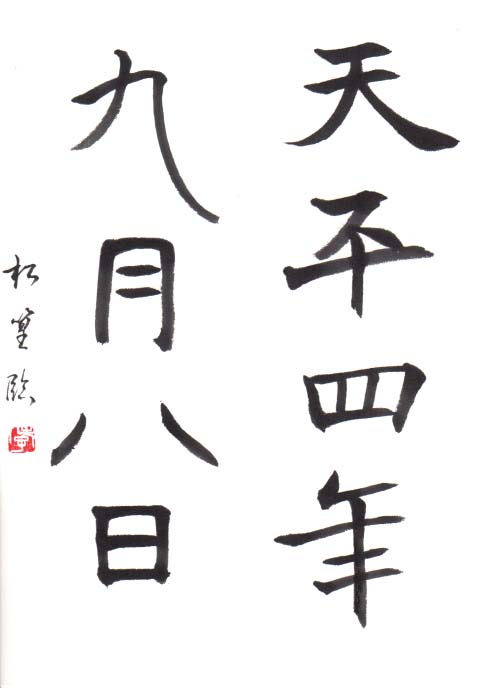 天平四年
九月八日
臨